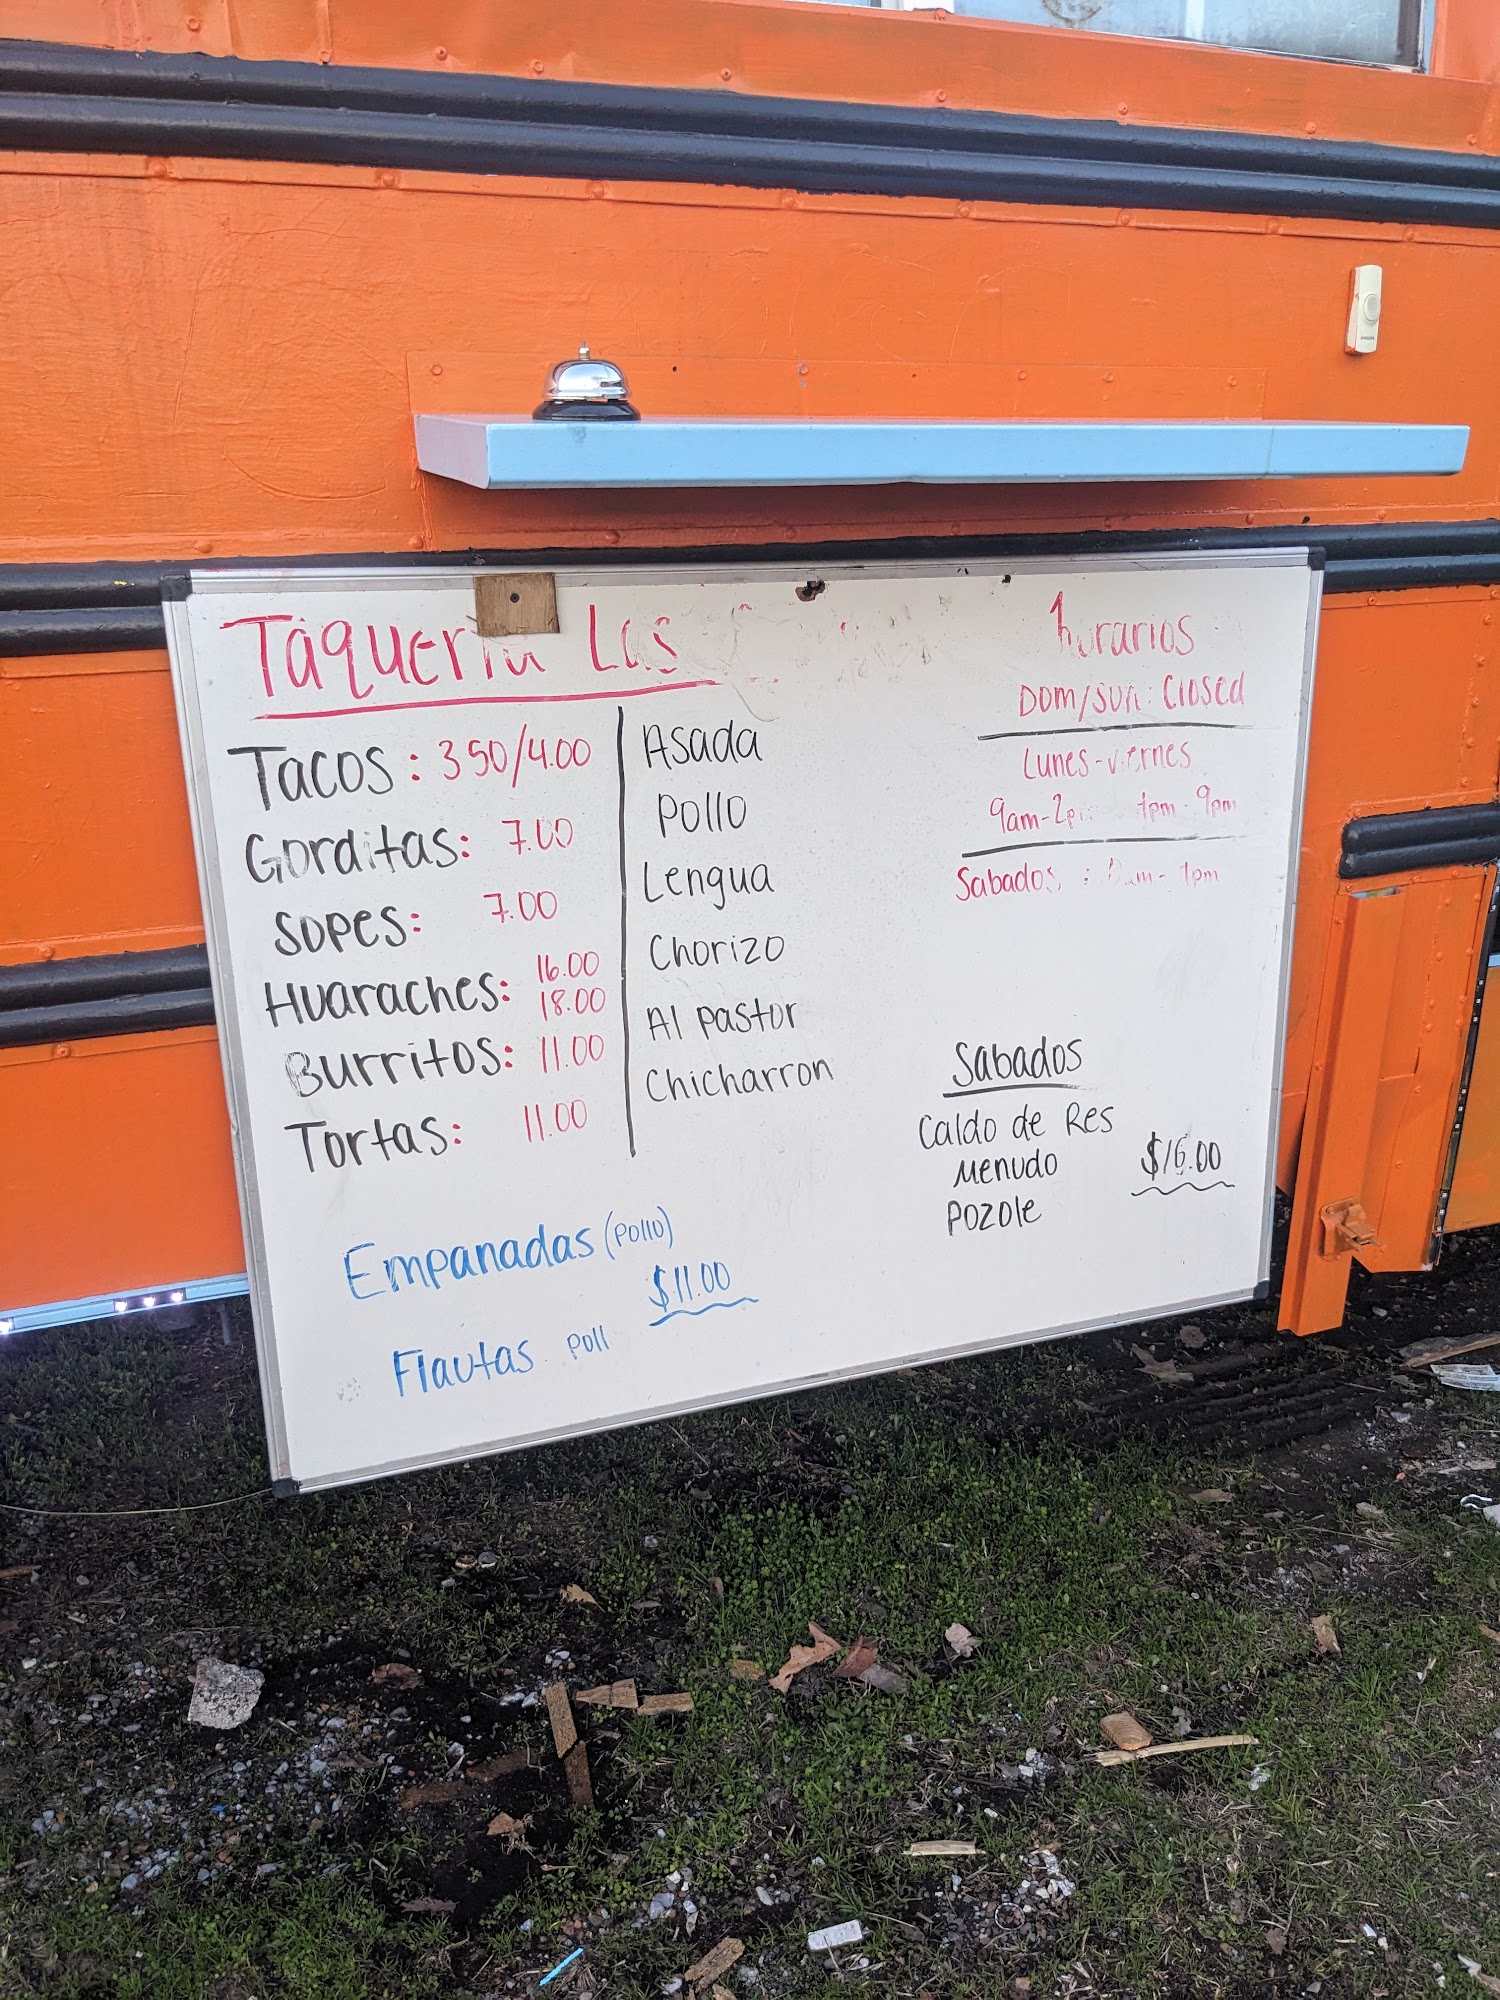 Taqueria Las
Tacos: 3.50/4.00
Gorditas: 7.00
Sopes: 7.00
Huaraches: 16.00
18.00
Burritos: 11.00
Tortas: 11.00
Asada
Pollo
Lengua
Chorizo
Al pastor
Chicharron
Empanadas (pollo)
$11.00
Flautas poll
horarios
Dom/sun: Closed
Lunes-viernes
9am-2pm 9pm
Sabados :
Sabados
Caldo de Res
Menudo
Pozole
$16.00